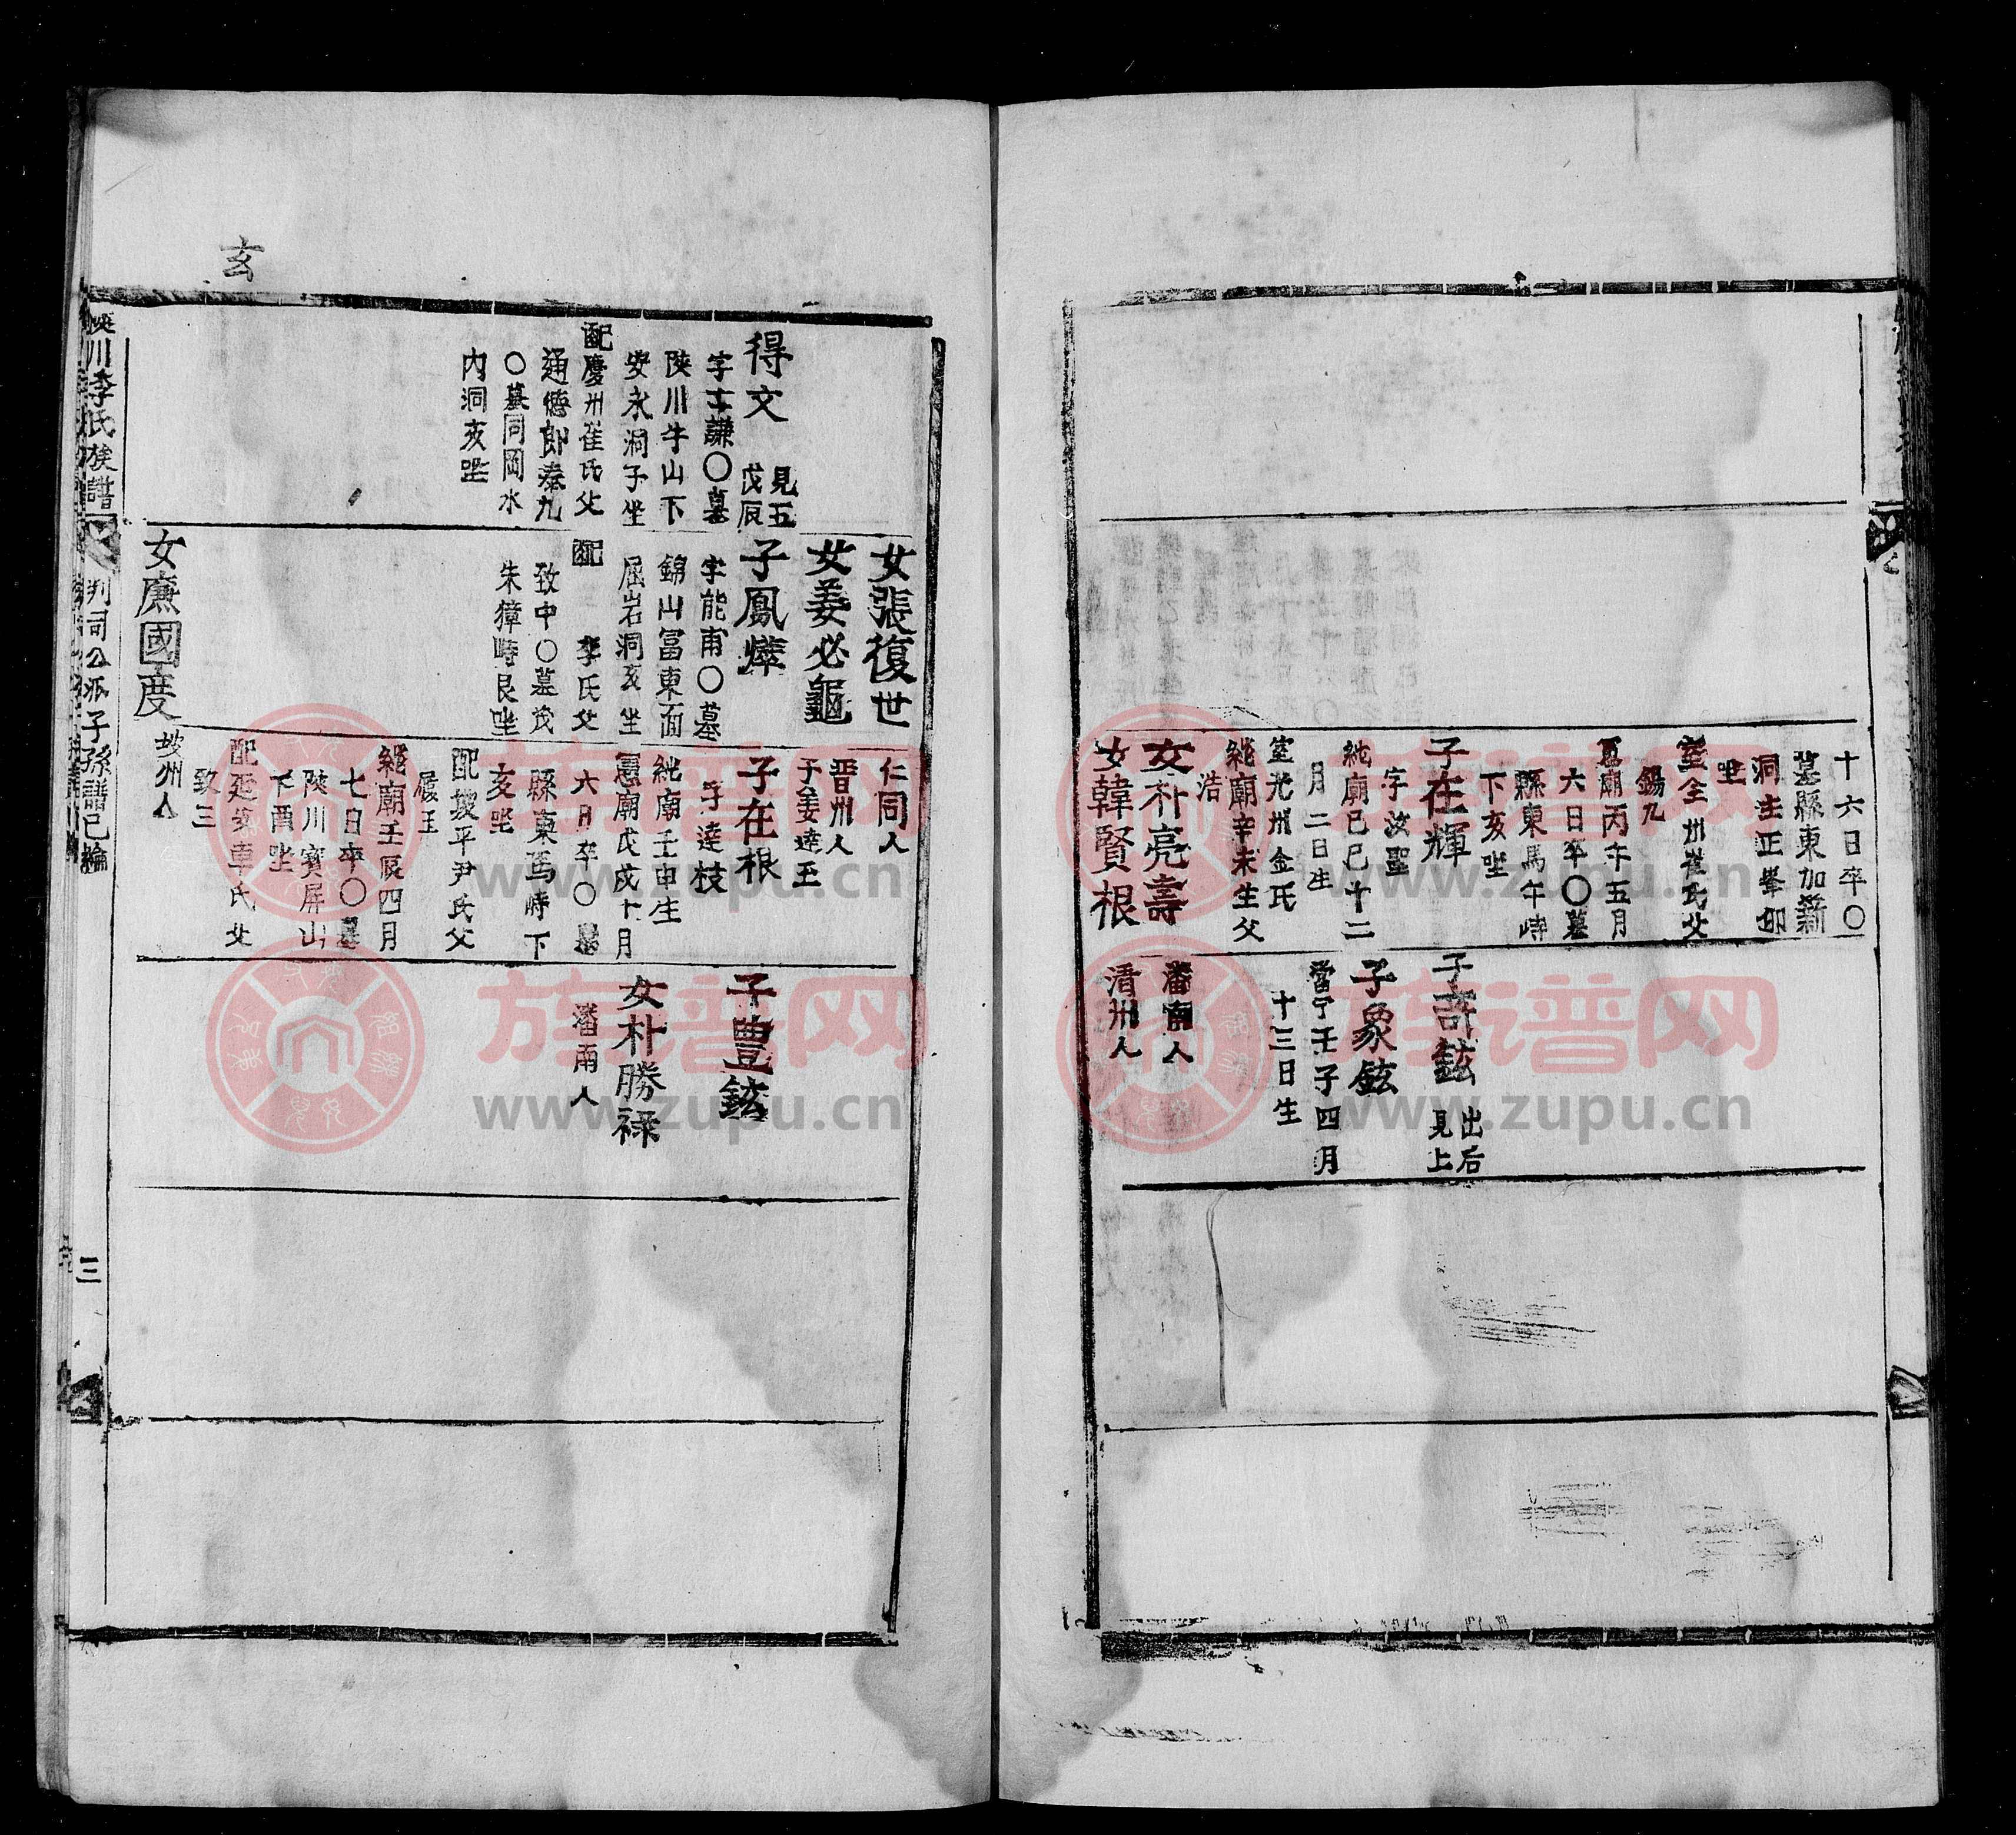 十六日卒〇
墓縣東加莭
洞主正峯卯
坐
室全州崔氏父
錫九
廟丙午五月
六日卒〇墓
縣東馬午峙
下亥坐
子在輝
字汝聖
純廟己巳十二
月二日生
室光州金氏
純廟辛未生父
浩
女朴亮壽
女韓賢根
子奇鉉 出后見上
子象鉉
當宁壬子四月
十三日生
潘南人
淸州人
玄
得文 見五戊辰
字士謙〇墓
陜川牛山下
安永洞子坐
配慶州崔氏父
通德郞泰九
〇墓同岡水
内洞亥坐
女張復世
女姜必龜
子鳳燁
字能甫〇墓
錦山富東面
屈岩洞亥坐
配 李氏父
致中〇墓茂
朱獐峙艮坐
女廉國度
仁同人
晋州人
子姜達玉
子在根
字達枝
純廟壬申生
憲廟戊戌十月
六日卒〇墓
縣東馬峙下
亥坐
配坡平尹氏父
履玉
純廟壬辰四月
七日卒〇墓
陜川寶屛山
下酉坐
配延安車氏父
致三
坡州人
子豊鉉
女朴勝祿
潘南人
陜川李氏族譜 判司公派子孫譜己編 三
族谱网
www.zupu.cn
族谱网
www.zupu.cn
族谱网
www.zupu.cn
族谱网
www.zupu.cn